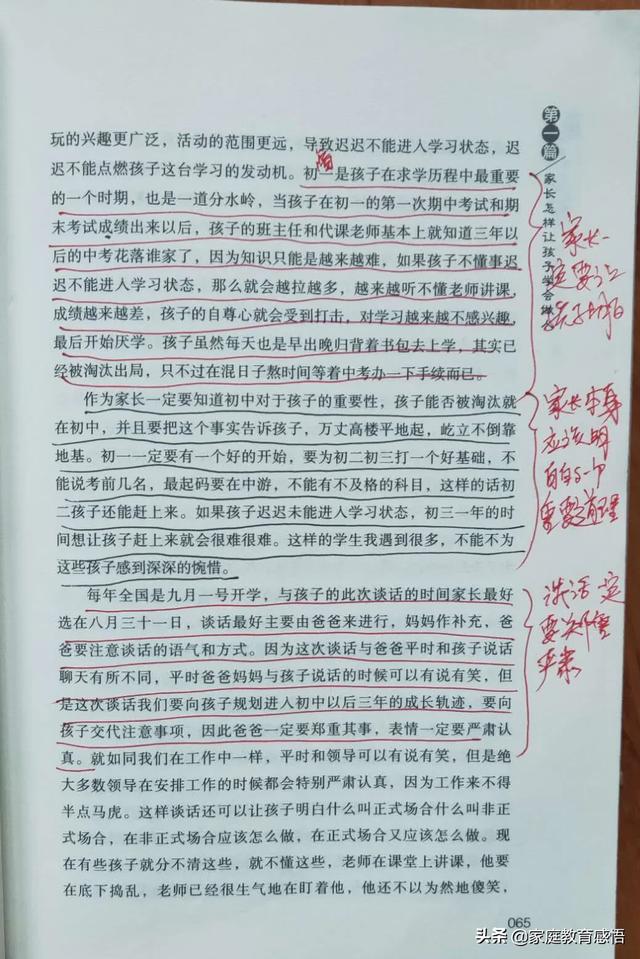 玩的兴趣更广泛，活动的范围更远，导致迟迟不能进入学习状态，迟
迟不能点燃孩子这台学习的发动机。初一是孩子在求学历程中最重要
的一个时期，也是一道分水岭，当孩子在初一的第一次期中考试和期
末考试成绩出来以后，孩子的班主任和代课老师基本上就知道三年以
后的中考花落谁家了，因为知识只能是越来越难，如果孩子不懂事迟
迟不能进入学习状态，那么就会越拉越多，越来越听不懂老师讲课，
成绩越来越差，孩子的自尊心就会受到打击，对学习越来越不感兴趣，
最后开始厌学。孩子虽然每天也是早出晚归背着书包去上学，其实已
经被淘汰出局，只不过在混日子熬时间等着中考办一下手续而已。
作为家长一定要知道初中对于孩子的重要性，孩子能否被淘汰就
在初中，并且要把这个事实告诉孩子，万丈高楼平地起，屹立不倒靠
地基。初一一定要有一个好的开始，要为初二初三打一个好基础，不
能说考前几名，最起码要在中游，不能有不及格的科目，这样的话初
二孩子还能赶上来。如果孩子迟迟未能进入学习状态，初三一年的时
间想让孩子赶上来就会很难很难。这样的学生我遇到很多，不能不为
这些孩子感到深深的惋惜。
每年全国是九月一号开学，与孩子的此次谈话的时间家长最好
选在八月三十一日，谈话最好主要由爸爸来进行，妈妈作补充，爸
爸要注意谈话的语气和方式。因为这次谈话与爸爸平时和孩子说话
聊天有所不同，平时爸爸妈妈与孩子说话的时候可以有说有笑，但
是这次谈话我们要向孩子规划进入初中以后三年的成长轨迹，要向
孩子交代注意事项，因此爸爸一定要郑重其事，表情一定要严肃认
真。就如同我们在工作中一样，平时和领导可以有说有笑，但是绝
大多数领导在安排工作的时候都会特别严肃认真，因为工作来不得
半点马虎。这样谈话还可以让孩子明白什么叫正式场合什么叫非正
式场合，在非正式场合应该怎么做，在正式场合又应该怎么做。现
在有些孩子就分不清这些，就不懂这些，老师在课堂上讲课，他要
在底下捣乱，老师已经很生气地在盯着他，他还不以为然地傻笑，
第一篇
家长怎样让孩子学会
家长一
定要让
孩子明白
家长本身
应该明
白的一个
重要道理
谈话一定
要郑重
严肃
065
头条@家庭教育感悟